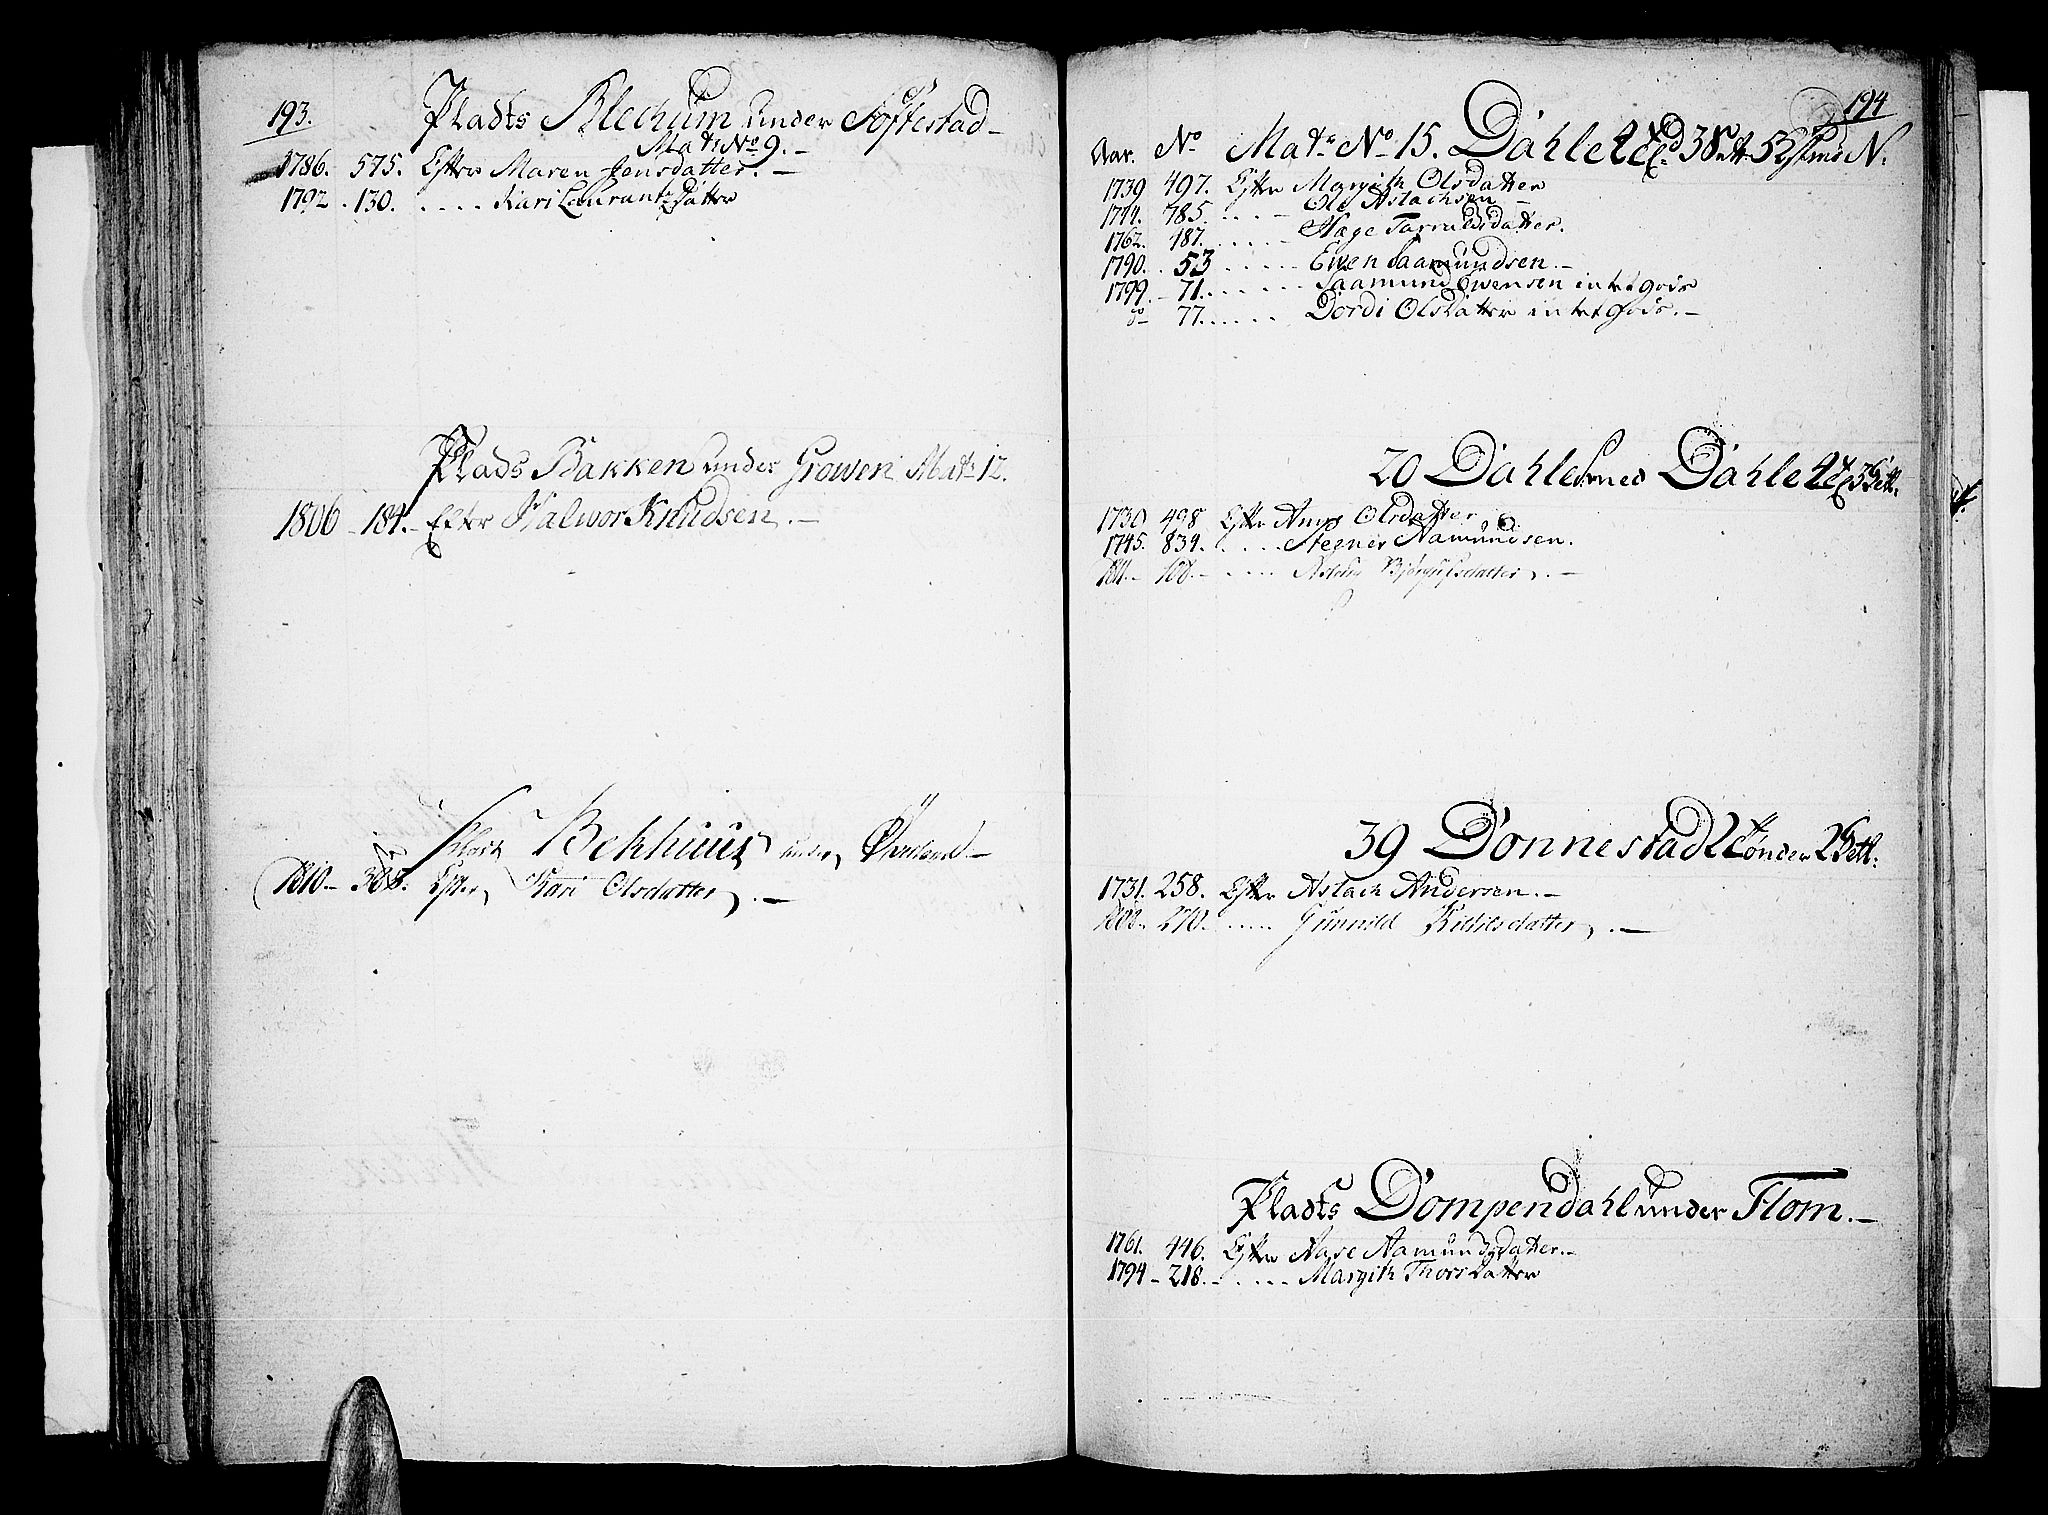 193.
Pladts Blechum under Softestad
Mat: No 9.
1786. 575. Efter Maren Jensdatter.
1792. 130. .... Kari Laurantzdatter
Plads Bakken under Growen Matr 12.
1806 - 184. Efter Halwor Knudsen.
Plads Bekhuus under
1810 - 368. Efter Kari Olsdatter.
194
Aar. No Matr No 15. Dahle
1739 497. Efter Margith Olsdatter
1744. 785. .... Ole Aslachsen
1762. 487. ..... Hæge Tarruldsdatter.
1790. 53 ..... Ewen Saamundsen.
1799. 71. ..... Saamund Ewensen intet gods
do 77. ..... Dordi Olsdatter intet gods.
20 Dahle med Dahle
1730 498 Efter Anne Olsdatter
1745. 834. .... Stegner Aamundsen.
1811 - 108. .... Bjørgufsdatter.
39 Donnestad under
1731. 258. Efter Aslach Andersen.
1808. 270. .... Gunnild Kittilsdatter.
Pladts Dompendahl under Flom.
1761. 446. Efter Aase Aamundsdatter.
1794 - 218. .... Margith Thorsdatter